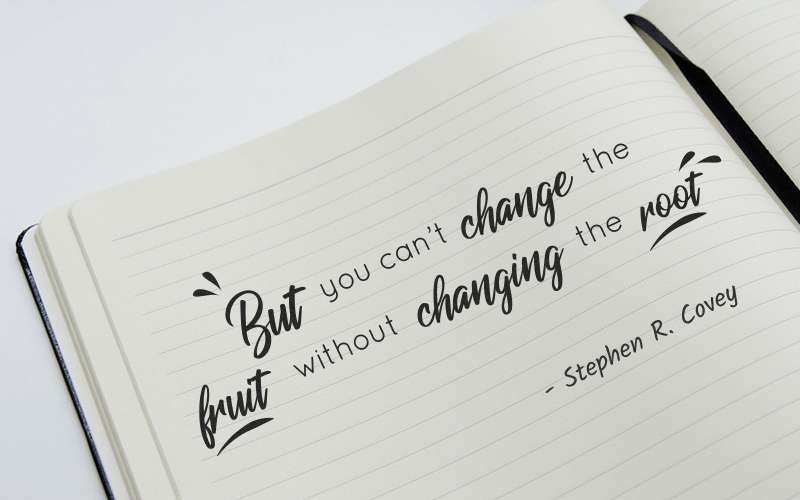 "But you can't change the
fruit without changing the root"
- Stephen R. Covey